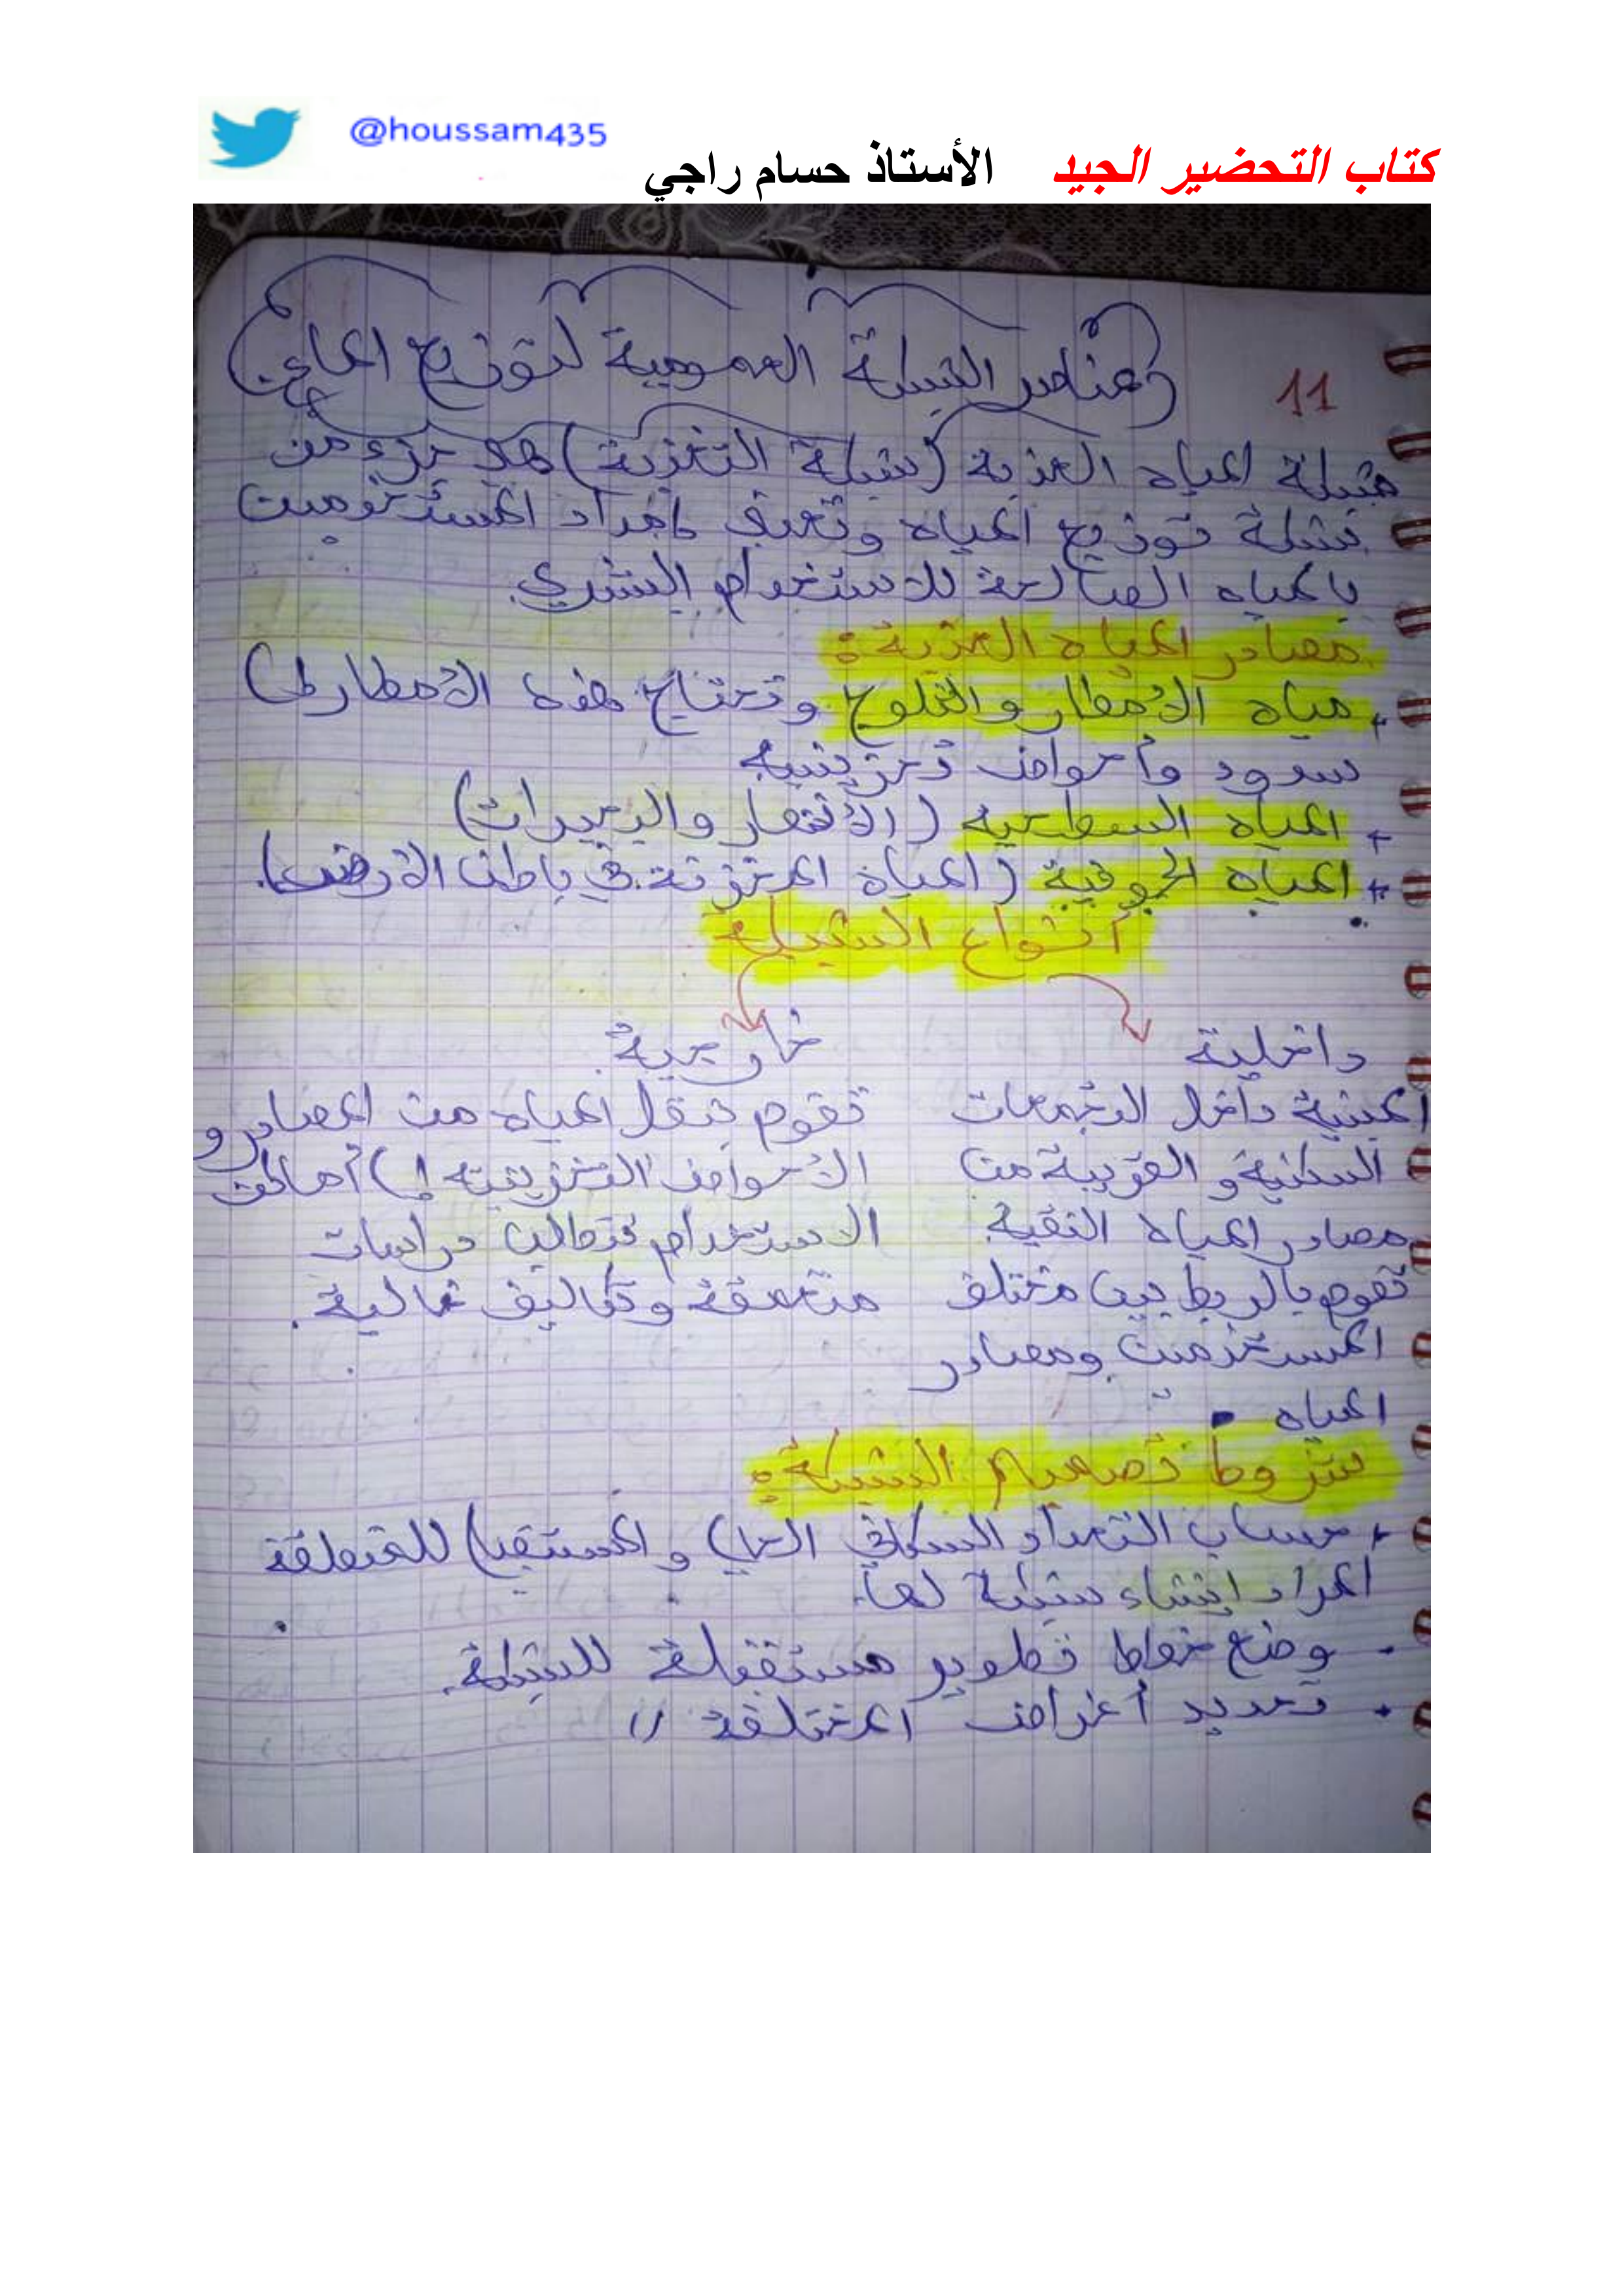 @houssam435
كتاب التحضير الجيد الأستاذ حسام راجي
11 عناصر الشبكة العمومية لتوزيع المياه
شبكة المياه العذبة (شبكة التغذية) هو جزء من
شبكة توزيع المياه وتعنى بإمداد المستخدمين
بالمياه الصالحة للاستخدام البشري.
مصادر المياه العذبة:
+ مياه الأمطار والثلوج وتحتاج هذه الأمطار إلى
سدود وأحواض تخزينية
+ المياه السطحية (الأنهار والبحيرات)
+ المياه الجوفية (المياه المختزنة في باطن الأرض).
أنواع الشبكة
داخلية
المبنية داخل التجمعات
السكنية و القريبة من
مصادر المياه النقية.
تقوم بالربط بين مختلف
المستخدمين ومصادر
المياه.
خارجية.
تقوم بنقل المياه من المصادر و
الأحواض التخزينية إلى أماكن
الاستخدام تتطلب دراسات
متعمقة وتكاليف غالية.
شروط تصميم الشبكة:
+ حساب التعداد السكاني الحالي و المستقبلي للمنطقة
المراد إنشاء شبكة لها.
- وضع خطط تطوير مستقبلة للشبكة.
• تحديد أغراض المختلفة //